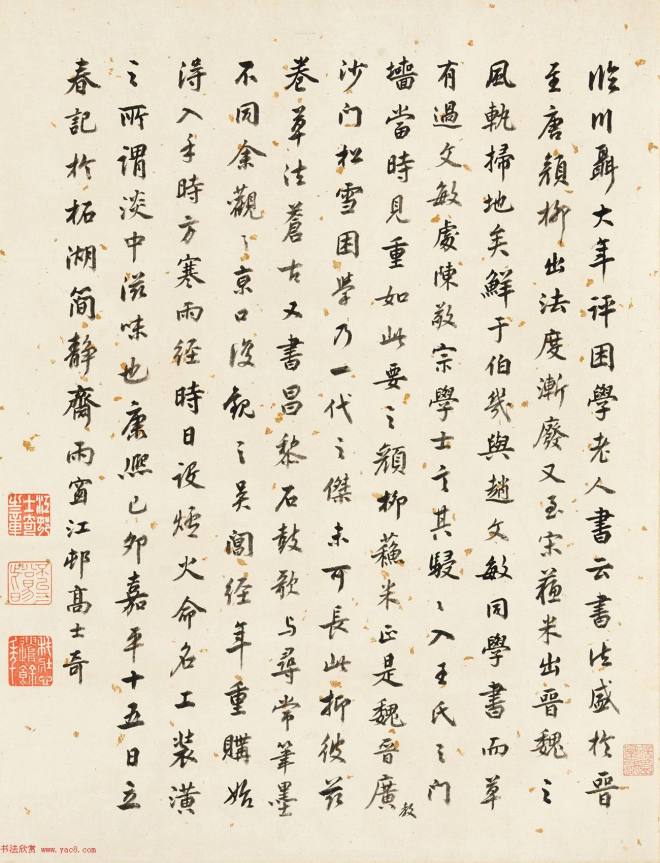 臨川聶大年評困學老人書云書法盛於晉
至唐顏柳出法度漸廢又至宋蘇米出晉魏之
風軌掃地矣鮮于伯幾與趙文敏同學書而草
有過文敏處陳敬宗學士言其駸〻入王氏之門
墻當時見重如此要之顏柳蘇米正是魏晉廣
教
沙門松雪困學乃一代之傑未可長此抑彼茲
卷草法蒼古又書昌黎石鼓歌与尋常筆墨
不同余觀之京口後觀之吳閶経年重購始
淂入手時方寒雨経時日設爐火命名工装潢
之所謂淡中滋味也康熙己卯嘉平十五日立
春記於柘湖簡靜齋雨窗江邨髙士奇
书法欣赏 www.yac8.com